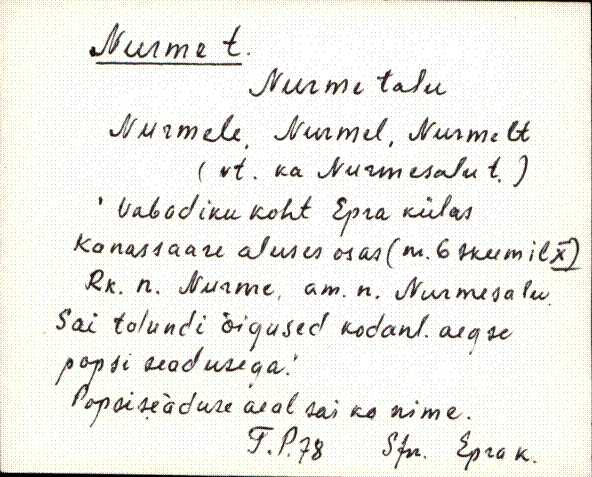 Nurme t.
Nurme talu
Nurmele, Nurmel, Nurmelt
(vt. ka Nurmesalu t.)
' Vabadiku koht Epra külas
Kanassaare aluses osas (n. 6 skeemil X)
Rk. n. Nurme, am. n. Nurmesalu.
Sai talundi õigused kodanl. aegse
popsi seadusega.'
Popsiseaduse aeal sai ka nime.
F.P.78 Sfn. Epra k.